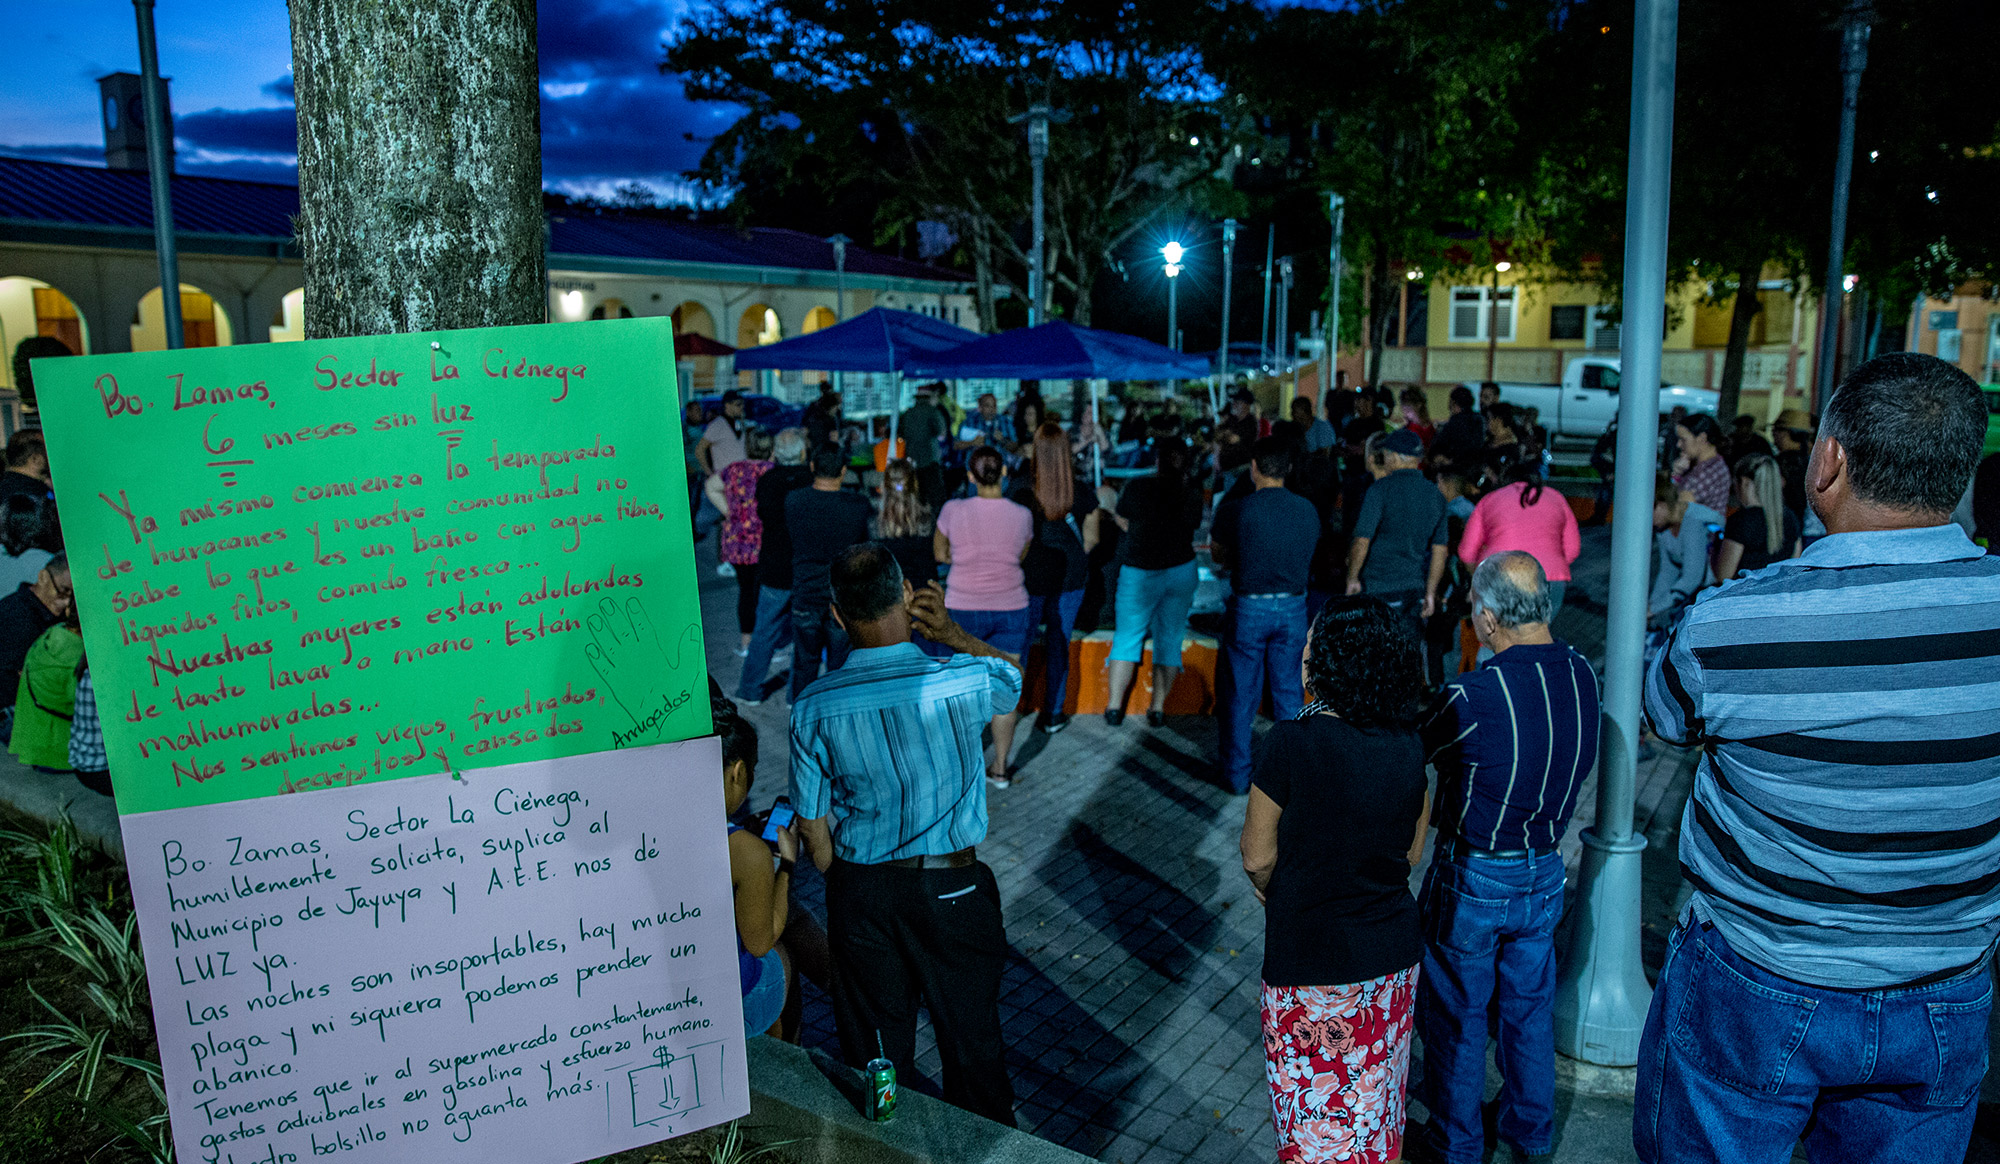 Bo. Zamas, Sector La Ciénega
6 meses sin luz
Ya mismo comienza la temporada
de huracanes y nuestra comunidad no
sabe lo que es un baño con agua tibia,
liquidos fríos, comida fresca...
Nuestras mujeres están adoloridas
de tanto lavar a mano. Están
malhumoradas...
Nos sentimos viejos, frustrados,
decrépitos y cansados
Arrugados
Bo. Zamas, Sector La Ciénega,
humildemente solicita, suplica al
Municipio de Jayuya y A.E.E. nos dé
LUZ ya.
Las noches son insoportables, hay mucha
plaga y ni siquiera podemos prender un
abanico.
Tenemos que ir al supermercado constantemente,
gastos adicionales en gasolina y esfuerzo humano.
bolsillo no aguanta más.
$
7